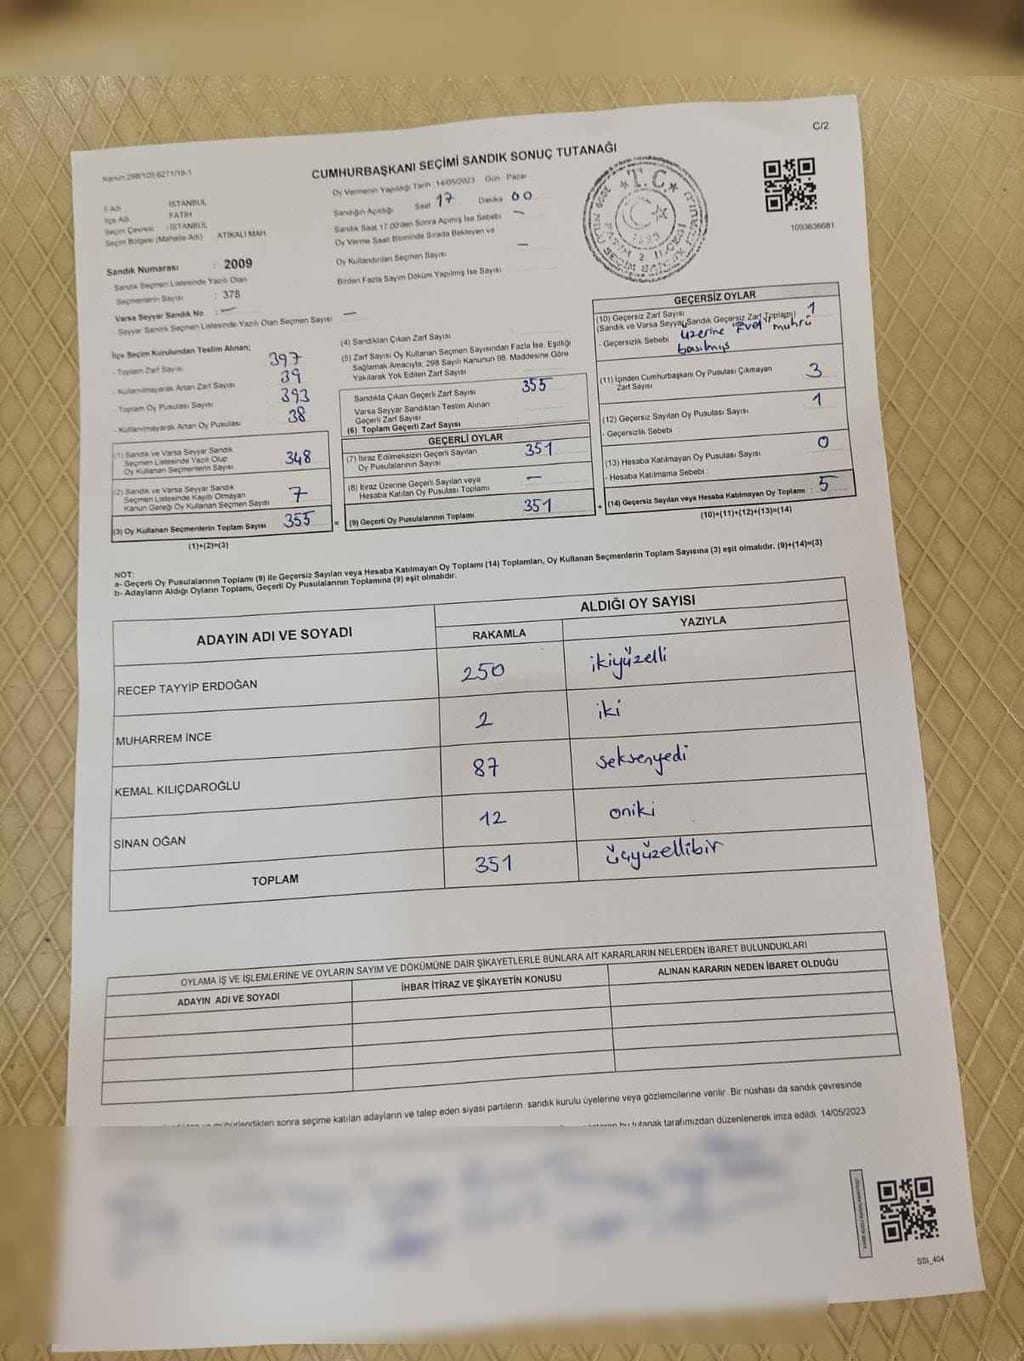 C/2
CUMHURBAŞKANI SEÇİMİ SANDIK SONUÇ TUTANAĞI
Oy Vermenin Yapıldığı Tarih : 14/05/2023 Gün : Pazar
Sandığın Açıldığı Saat 17 Dakika 00
Sandık Saat 17:00'den Sonra Açılmış İse Sebebi —
Oy Verme Saati Bitiminde Sırada Bekleyen ve
Oy Kullandırılan Seçmen Sayısı —
Birden Fazla Sayım Döküm Yapılmış İse Sayısı
T.C.
1093636681
İl Adı : İSTANBUL
İlçe Adı : FATİH
Seçim Çevresi : İSTANBUL
Seçim Bölgesi (Mahalle Adı) : ATİKALİ MAH
Sandık Numarası : 2009
- Sandık Seçmen Listesinde Yazılı Olan
Seçmenlerin Sayısı : 378
Varsa Seyyar Sandık No : —
- Seyyar Sandık Seçmen Listesinde Yazılı Olan Seçmen Sayısı : —
İlçe Seçim Kurulundan Teslim Alınan;
- Toplam Zarf Sayısı 397
- Kullanılmayarak Artan Zarf Sayısı 39
- Toplam Oy Pusulası Sayısı 393
- Kullanılmayarak Artan Oy Pusulası 38
(1) Sandık ve Varsa Seyyar Sandık
Seçmen Listesinde Yazılı Olup
Oy Kullanan Seçmenlerin Sayısı 348
(2) Sandık ve Varsa Seyyar Sandık
Seçmen Listesinde Kayıtlı Olmayan
Kanun Gereği Oy Kullanan Seçmen Sayısı 7
(3) Oy Kullanan Seçmenlerin Toplam Sayısı 355
(1)+(2)=(3)
(4) Sandıktan Çıkan Zarf Sayısı
(5) Zarf Sayısı Oy Kullanan Seçmen Sayısından Fazla İse, Eşitliği
Sağlamak Amacıyla; 298 Sayılı Kanunun 98. Maddesine Göre
Yakılarak Yok Edilen Zarf Sayısı
Sandıkta Çıkan Geçerli Zarf Sayısı 355
Varsa Seyyar Sandıktan Teslim Alınan
Geçerli Zarf Sayısı
(6) Toplam Geçerli Zarf Sayısı
GEÇERLİ OYLAR
(7) İtiraz Edilmeksizin Geçerli Sayılan
Oy Pusulalarının Sayısı 351
(8) İtiraz Üzerine Geçerli Sayılan veya
Hesaba Katılan Oy Pusulası Toplamı —
= (9) Geçerli Oy Pusulalarının Toplamı 351
GEÇERSİZ OYLAR
(10) Geçersiz Zarf Sayısı 1
(Sandık ve Varsa Seyyar Sandık Geçersiz Zarf Toplamı)
- Geçersizlik Sebebi üzerine "Evet" mührü
basılmış
(11) İçinden Cumhurbaşkanı Oy Pusulası Çıkmayan
Zarf Sayısı 3
(12) Geçersiz Sayılan Oy Pusulası Sayısı 1
- Geçersizlik Sebebi
(13) Hesaba Katılmayan Oy Pusulası Sayısı 0
- Hesaba Katılmama Sebebi :
+ (14) Geçersiz Sayılan veya Hesaba Katılmayan Oy Toplamı : 5
(10)+(11)+(12)+(13)=(14)
NOT:
a- Geçerli Oy Pusulalarının Toplamı (9) ile Geçersiz Sayılan veya Hesaba Katılmayan Oy Toplamı (14) Toplamları, Oy Kullanan Seçmenlerin Toplam Sayısına (3) eşit olmalıdır. (9)+(14)=(3)
b- Adayların Aldığı Oyların Toplamı, Geçerli Oy Pusulalarının Toplamına (9) eşit olmalıdır.
ADAYIN ADI VE SOYADI
ALDIĞI OY SAYISI
RAKAMLA YAZIYLA
RECEP TAYYİP ERDOĞAN 250 ikiyüzelli
MUHARREM İNCE 2 iki
KEMAL KILIÇDAROĞLU 87 seksenyedi
SİNAN OĞAN 12 oniki
TOPLAM 351 üçyüzellibir
OYLAMA İŞ VE İŞLEMLERİNE VE OYLARIN SAYIM VE DÖKÜMÜNE DAİR ŞİKAYETLERLE BUNLARA AİT KARARLARIN NELERDEN İBARET BULUNDUKLARI
ADAYIN ADI VE SOYADI İHBAR İTİRAZ VE ŞİKAYETİN KONUSU ALINAN KARARIN NEDEN İBARET OLDUĞU
sonra seçime katılan adayların ve talep eden siyasi partilerin sandık kurulu üyelerine veya gözlemcilerine verilir. Bir nüshası da sandık çevresinde
bu tutanak tarafımızdan düzenlenerek imza edildi. 14/05/2023
SSI_404